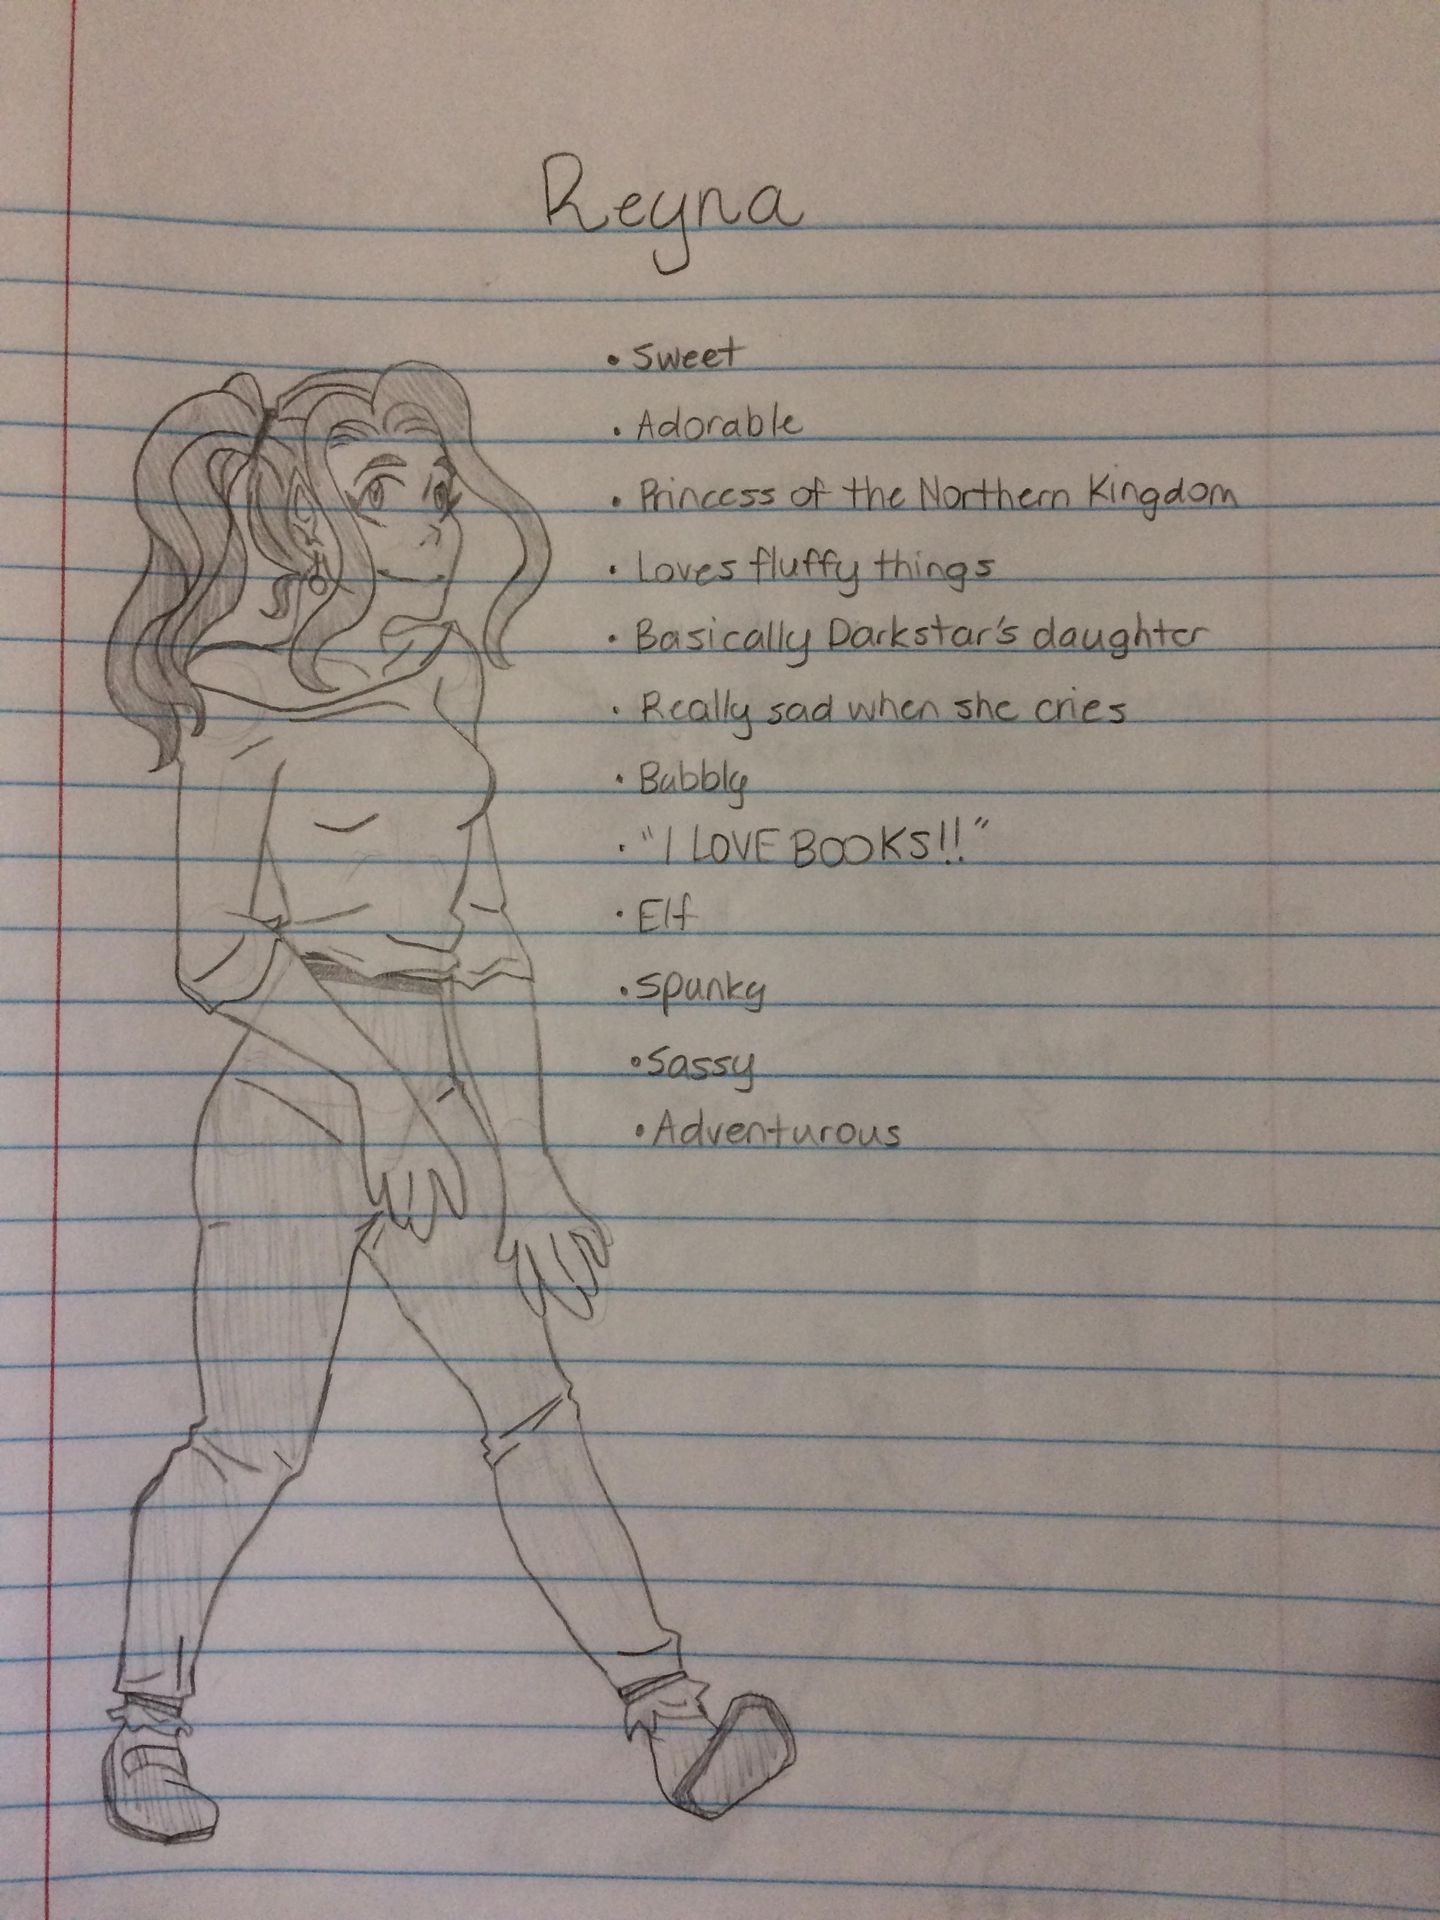 Reyna
• Sweet
• Adorable
• Princess of the Northern Kingdom
• Loves fluffy things
• Basically Darkstar's daughter
• Really sad when she cries
• Bubbly
• "I LOVE BOOKS!!"
• Elf
• Spunky
• Sassy
• Adventurous